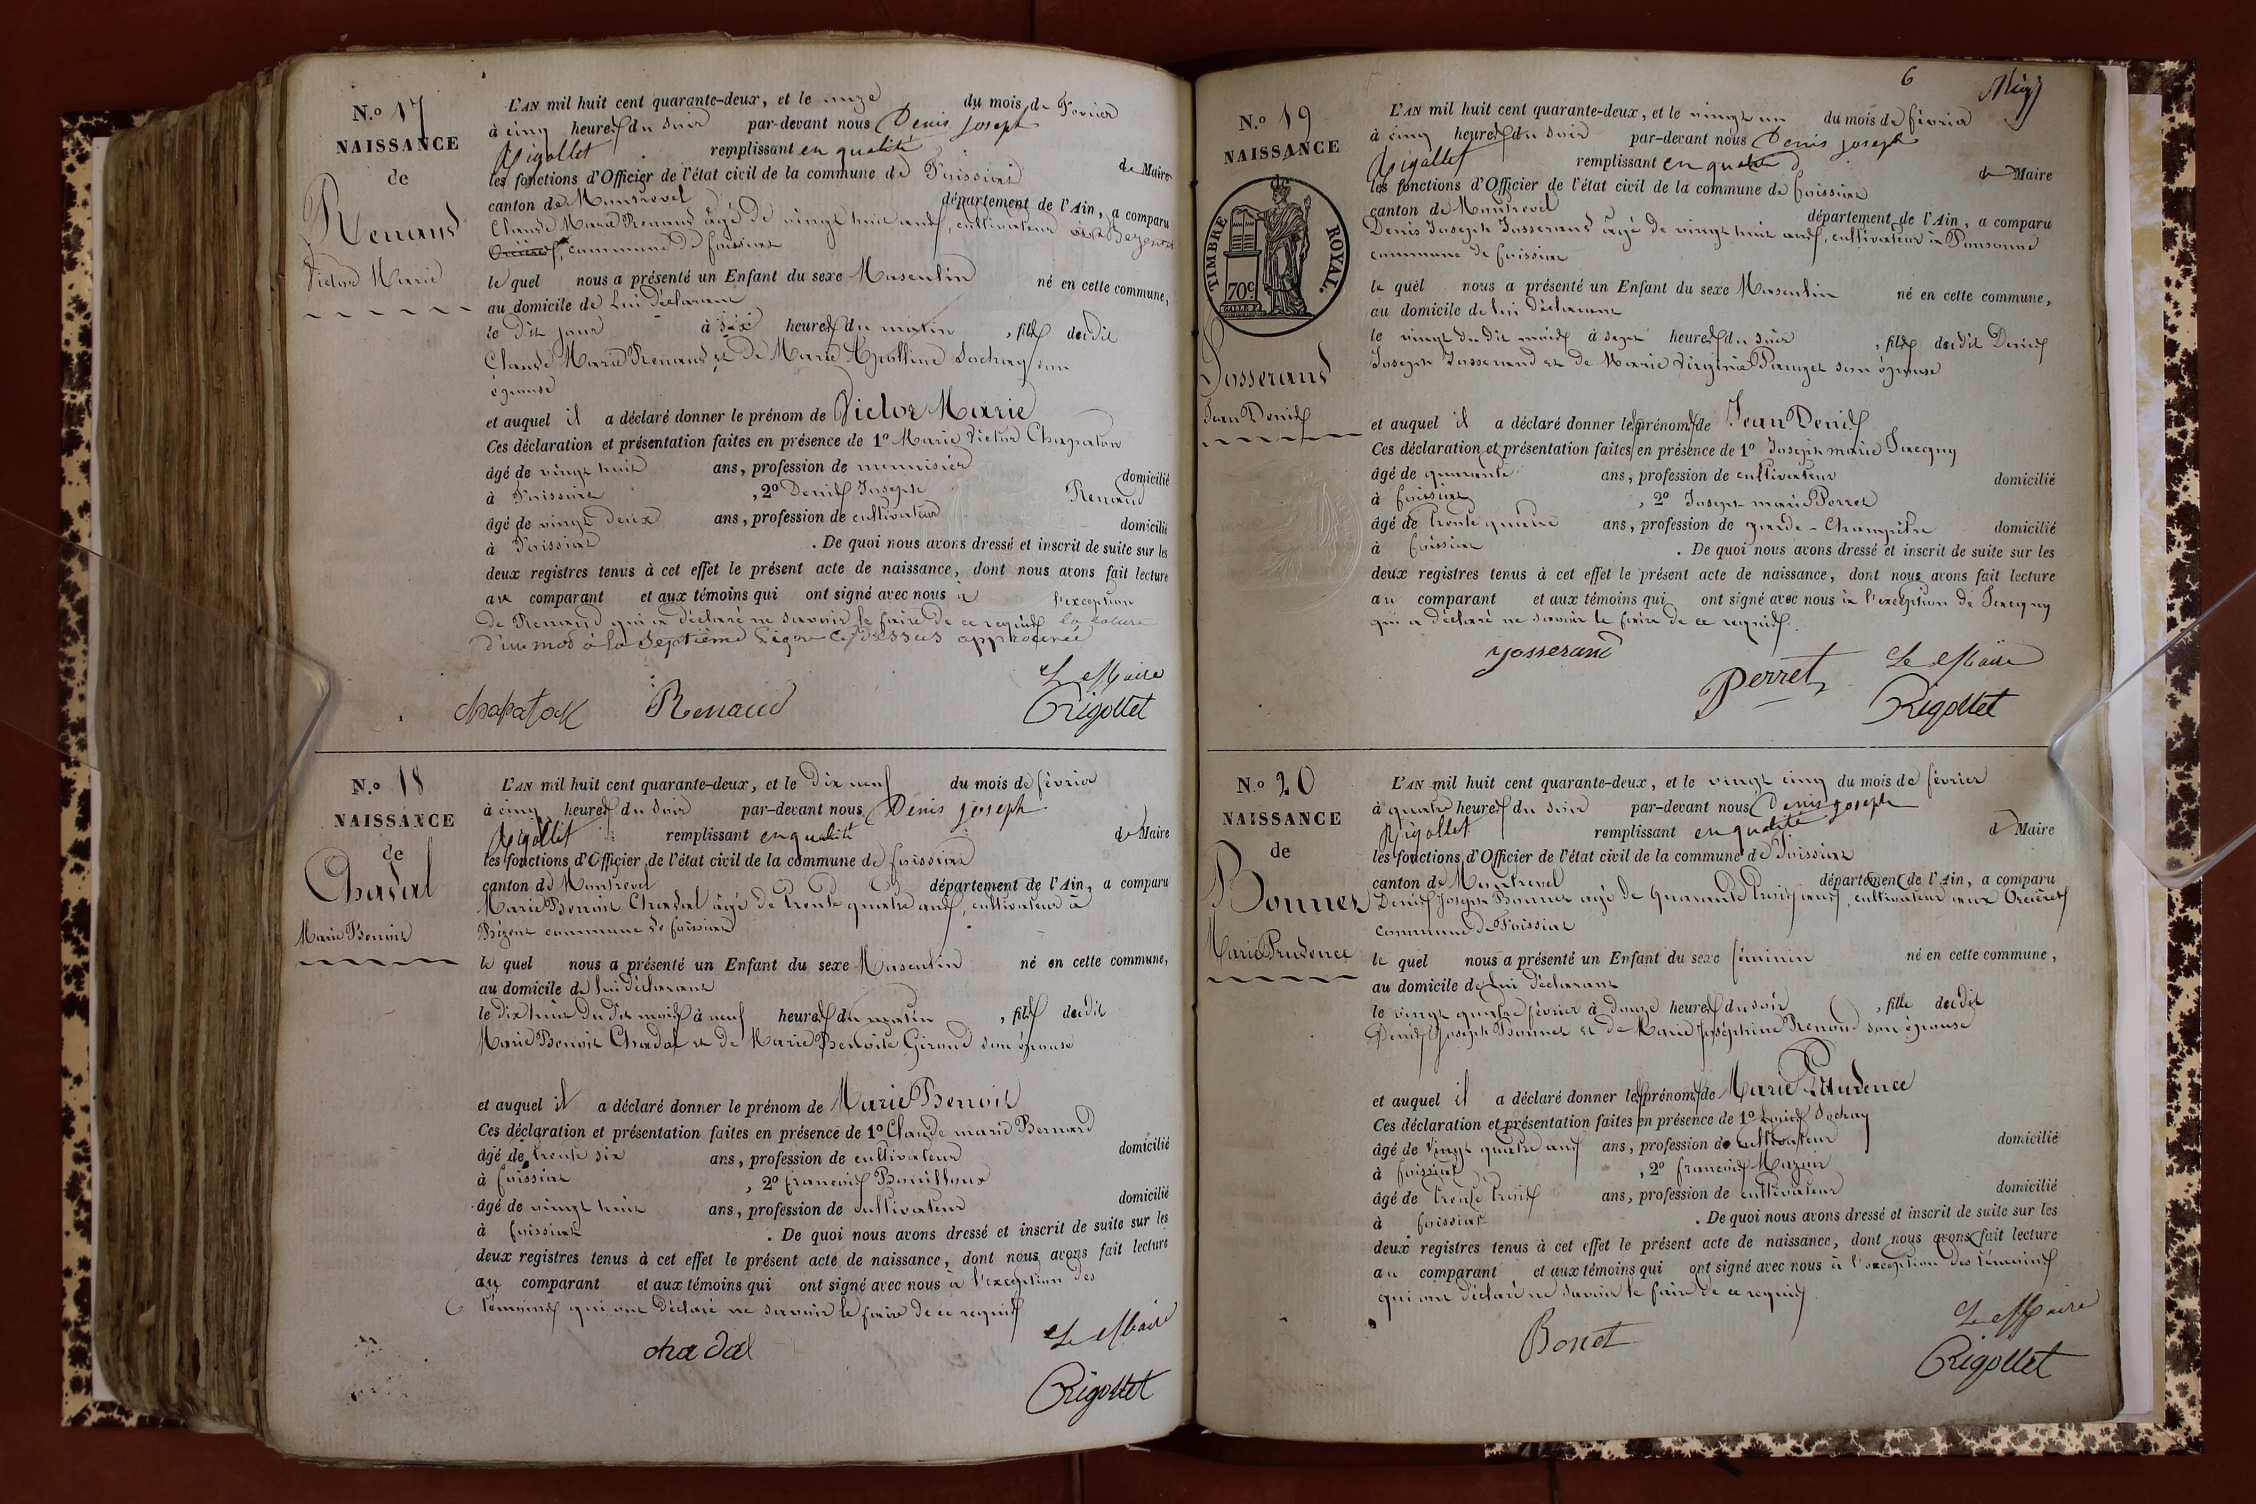 N.o 17
NAISSANCE
de
Renaud
Victor Marie
L'AN mil huit cent quarante-deux, et le onze du mois de Fevrier
à cinq heures du soir par-devant nous Denis Joseph
Rigollet remplissant en qualité de Maire
les fonctions d'Officier de l'état civil de la commune de Foissiat
canton de Montrevel département de l'Ain, a comparu
Claude Marie Renaud âgé de vingt huit ans, cultivateur
commune de foissiat
le quel nous a présenté un Enfant du sexe Masculin né en cette commune,
au domicile de lui déclarant
le dit jour à six heures du matin, fils du dit
Claude Marie Renaud et de Marie Apolline Sochay son
épouse
et auquel il a déclaré donner le prénom de Victor Marie
Ces déclaration et présentation faites en présence de 1o Marie Victor Chapaton
âgé de vingt huit ans, profession de menuisier domicilié
à Foissiat, 2o Denis Joseph Renaud
âgé de vingt deux ans, profession de cultivateur domicilié
à Foissiat. De quoi nous avons dressé et inscrit de suite sur les
deux registres tenus à cet effet le présent acte de naissance, dont nous avons fait lecture
au comparant et aux témoins qui ont signé avec nous à l'exception
de Renaud qui a déclaré ne savoir le faire de ce requis la rature
d'un mot à la septième ligne ci dessus approuvée
Le Maire
chapaton Renaud Rigollet
N.o 18
NAISSANCE
de
Chadal
Marie Benoit
L'AN mil huit cent quarante-deux, et le dix neuf du mois de février
à cinq heures du soir par-devant nous Denis Joseph
Rigollet remplissant en qualité de Maire
les fonctions d'Officier de l'état civil de la commune de foissiat
canton de Montrevel département de l'Ain, a comparu
Marie Benoit Chadal âgé de trente quatre ans, cultivateur à
Bézent commune de foissiat
le quel nous a présenté un Enfant du sexe Masculin né en cette commune,
au domicile de lui déclarant
le dix huit du dit mois à neuf heures du matin, fils du dit
Marie Benoit Chadal et de Marie Benoite Giroud son épouse
et auquel il a déclaré donner le prénom de Marie Benoit
Ces déclaration et présentation faites en présence de 1o Claude marie Bernard
âgé de trente six ans, profession de cultivateur domicilié
à foissiat, 2o françois Bouilloux
âgé de vingt huit ans, profession de cultivateur domicilié
à foissiat. De quoi nous avons dressé et inscrit de suite sur les
deux registres tenus à cet effet le présent acte de naissance, dont nous avons fait lecture
au comparant et aux témoins qui ont signé avec nous à l'exception des
témoins qui ont déclaré ne savoir le faire de ce requis
Le Maire
chadal
Rigollet
6
N.o 19
NAISSANCE
de
TIMBRE ROYAL.
70c
Josserand
Jean Denis
L'AN mil huit cent quarante-deux, et le vingt un du mois de février
à cinq heures du soir par-devant nous Denis Joseph
Rigollet remplissant en qualité de Maire
les fonctions d'Officier de l'état civil de la commune de foissiat
canton de Montrevel département de l'Ain, a comparu
Denis Joseph Josserand âgé de vingt huit ans, cultivateur à Ponsonne
commune de foissiat
le quel nous a présenté un Enfant du sexe Masculin né en cette commune,
au domicile de lui déclarant
le vingt du dit mois à sept heures du soir, fils du dit Denis
Joseph Josserand et de Marie Virginie Pauget son épouse
et auquel il a déclaré donner les prénoms de Jean Denis
Ces déclaration et présentation faites en présence de 1o Joseph marie
âgé de quarante ans, profession de cultivateur domicilié
à foissiat, 2o Joseph marie Perret
âgé de trente quatre ans, profession de garde-champêtre domicilié
à foissiat. De quoi nous avons dressé et inscrit de suite sur les
deux registres tenus à cet effet le présent acte de naissance, dont nous avons fait lecture
au comparant et aux témoins qui ont signé avec nous à l'exception de
qui a déclaré ne savoir le faire de ce requis.
Josserand Le Maire
Perret Rigollet
N.o 20
NAISSANCE
de
Bonnet
Marie Prudence
L'AN mil huit cent quarante-deux, et le vingt cinq du mois de février
à quatre heures du soir par-devant nous Denis Joseph
Rigollet remplissant en qualité de Maire
les fonctions d'Officier de l'état civil de la commune de Foissiat
canton de Montrevel département de l'Ain, a comparu
Denis Joseph Bonnet agé de quarante trois ans, cultivateur aux Orcières
commune de Foissiat
le quel nous a présenté un Enfant du sexe féminin né en cette commune,
au domicile de lui déclarant
le vingt quatre février à douze heures du soir, fille du dit
Denis Joseph Bonnet et de Marie Joséphine Renoud son épouse
et auquel il a déclaré donner les prénoms de Marie Prudence
Ces déclaration et présentation faites en présence de 1o Louis Sochay
âgé de vingt quatre ans ans, profession de cultivateur domicilié
à foissiat, 2o françois Mazuir
âgé de trente trois ans, profession de cultivateur domicilié
à foissiat. De quoi nous avons dressé et inscrit de suite sur les
deux registres tenus à cet effet le présent acte de naissance, dont nous avons fait lecture
au comparant et aux témoins qui ont signé avec nous à l'exception des témoins
qui ont déclaré ne savoir le faire de ce requis
Le Maire
Bonet
Rigollet